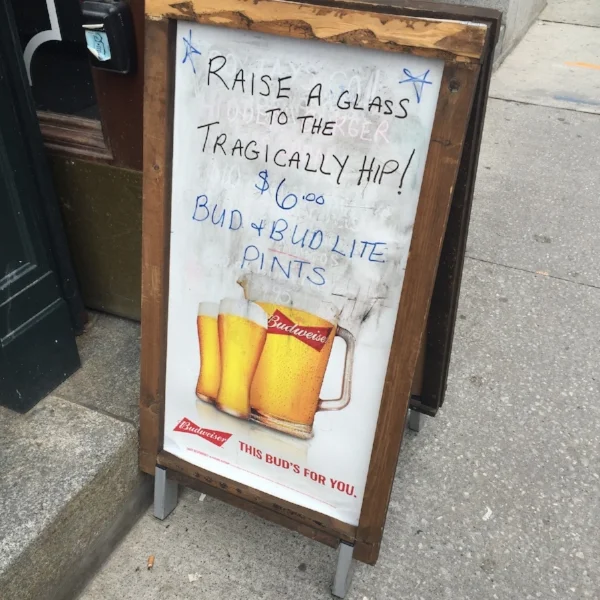 RAISE A GLASS
TO THE
TRAGICALLY HIP!
$6.00
BUD & BUD LITE
PINTS
Budweiser
Budweiser
THIS BUD'S FOR YOU.